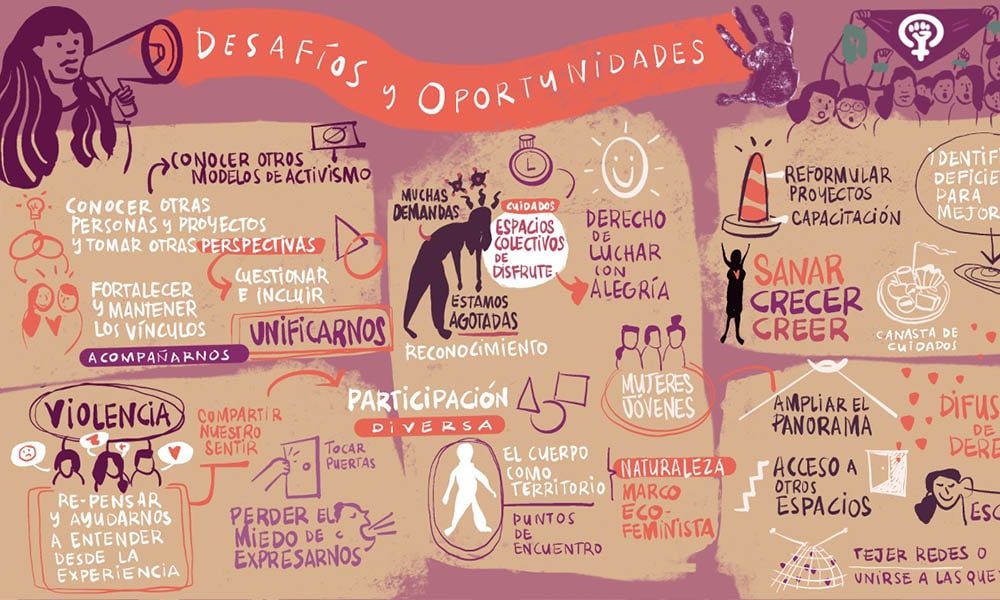 DESAFÍOS Y OPORTUNIDADES
CONOCER OTROS
MODELOS DE ACTIVISMO
CONOCER OTRAS
PERSONAS Y PROYECTOS
Y TOMAR OTRAS PERSPECTIVAS
CUESTIONAR
E INCLUIR
FORTALECER
Y MANTENER
LOS VÍNCULOS
UNIFICARNOS
ACOMPAÑARNOS
MUCHAS
DEMANDAS
CUIDADOS
ESPACIOS
COLECTIVOS
DE
DISFRUTE
ESTAMOS
AGOTADAS
RECONOCIMIENTO
DERECHO
DE
LUCHAR
CON
ALEGRÍA
REFORMULAR
PROYECTOS
CAPACITACIÓN
PARA
SANAR
CRECER
CREER
CANASTA DE
CUIDADOS
VIOLENCIA
COMPARTIR
NUESTRO
SENTIR
RE-PENSAR
Y AYUDARNOS
A ENTENDER
DESDE LA
EXPERIENCIA
TOCAR
PUERTAS
PERDER EL
MIEDO DE
EXPRESARNOS
PARTICIPACIÓN
DIVERSA
MUJERES
JÓVENES
EL CUERPO
COMO
TERRITORIO
PUNTOS
DE
ENCUENTRO
NATURALEZA
MARCO
ECO-
FEMINISTA
AMPLIAR EL
PANORAMA
DE
ACCESO A
OTROS
ESPACIOS
TEJER REDES O
UNIRSE A LAS QUE